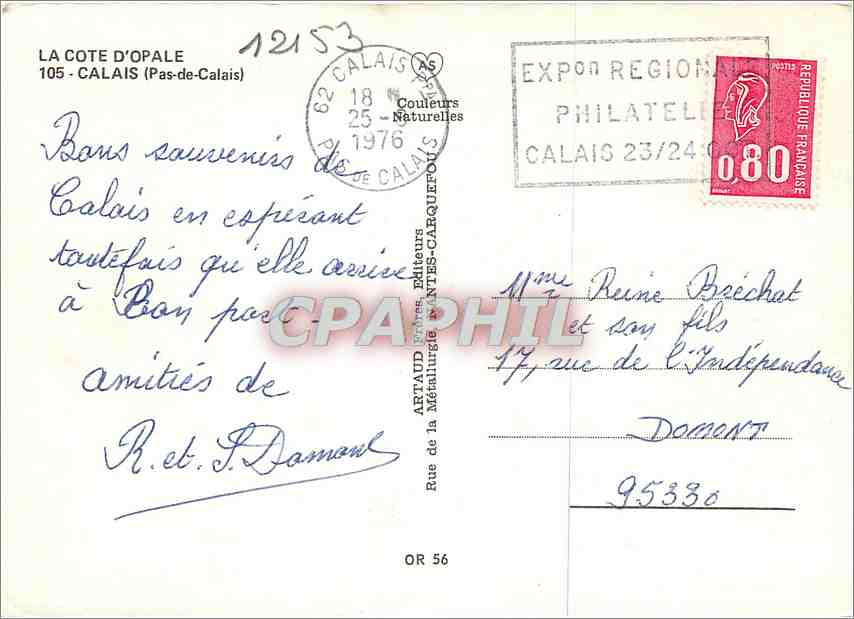 LA COTE D'OPALE
105 - CALAIS (Pas-de-Calais)
12153
AS
Couleurs
Naturelles
62 CALAIS
18 H
25 -
1976
PAS DE CALAIS
EXPon REGIONA
PHILATEL
CALAIS 23/24
POSTES
REPUBLIQUE FRANÇAISE
0,80
Bons souvenirs de
Calais en espérant
toutefois qu'elle arrive
à Bon port -
amitiés de
R. et. S. Damont
ARTAUD Frères, Editeurs
Rue de la Métallurgie, NANTES-CARQUEFOU
CPAPHIL
Mme Reine Bréchat
et son fils
17, rue de l'Indépendance
DOMONT
95330
OR 56